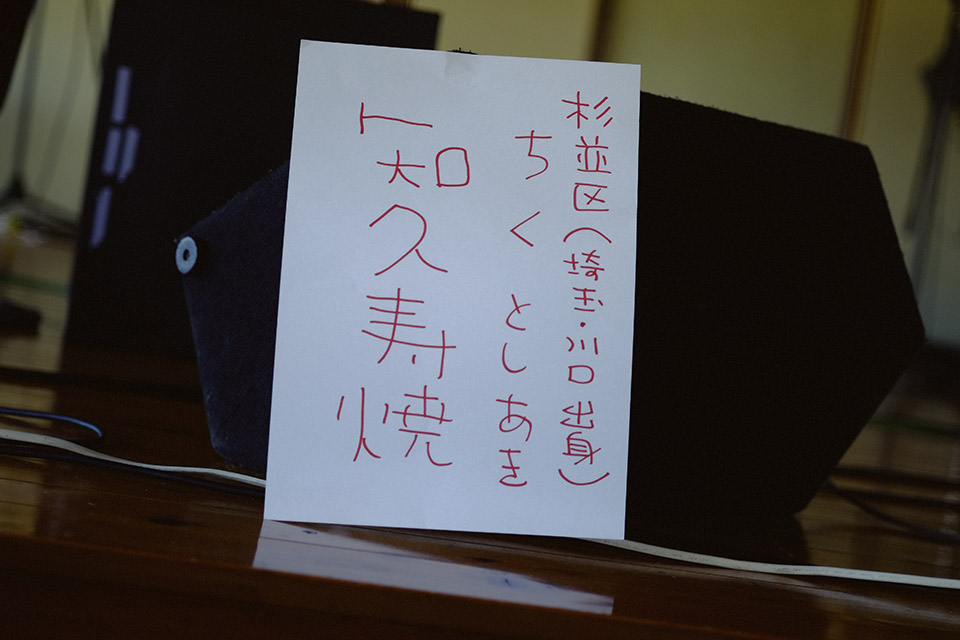 杉並区(埼玉・川口出身)
ちく としあき
知久寿焼